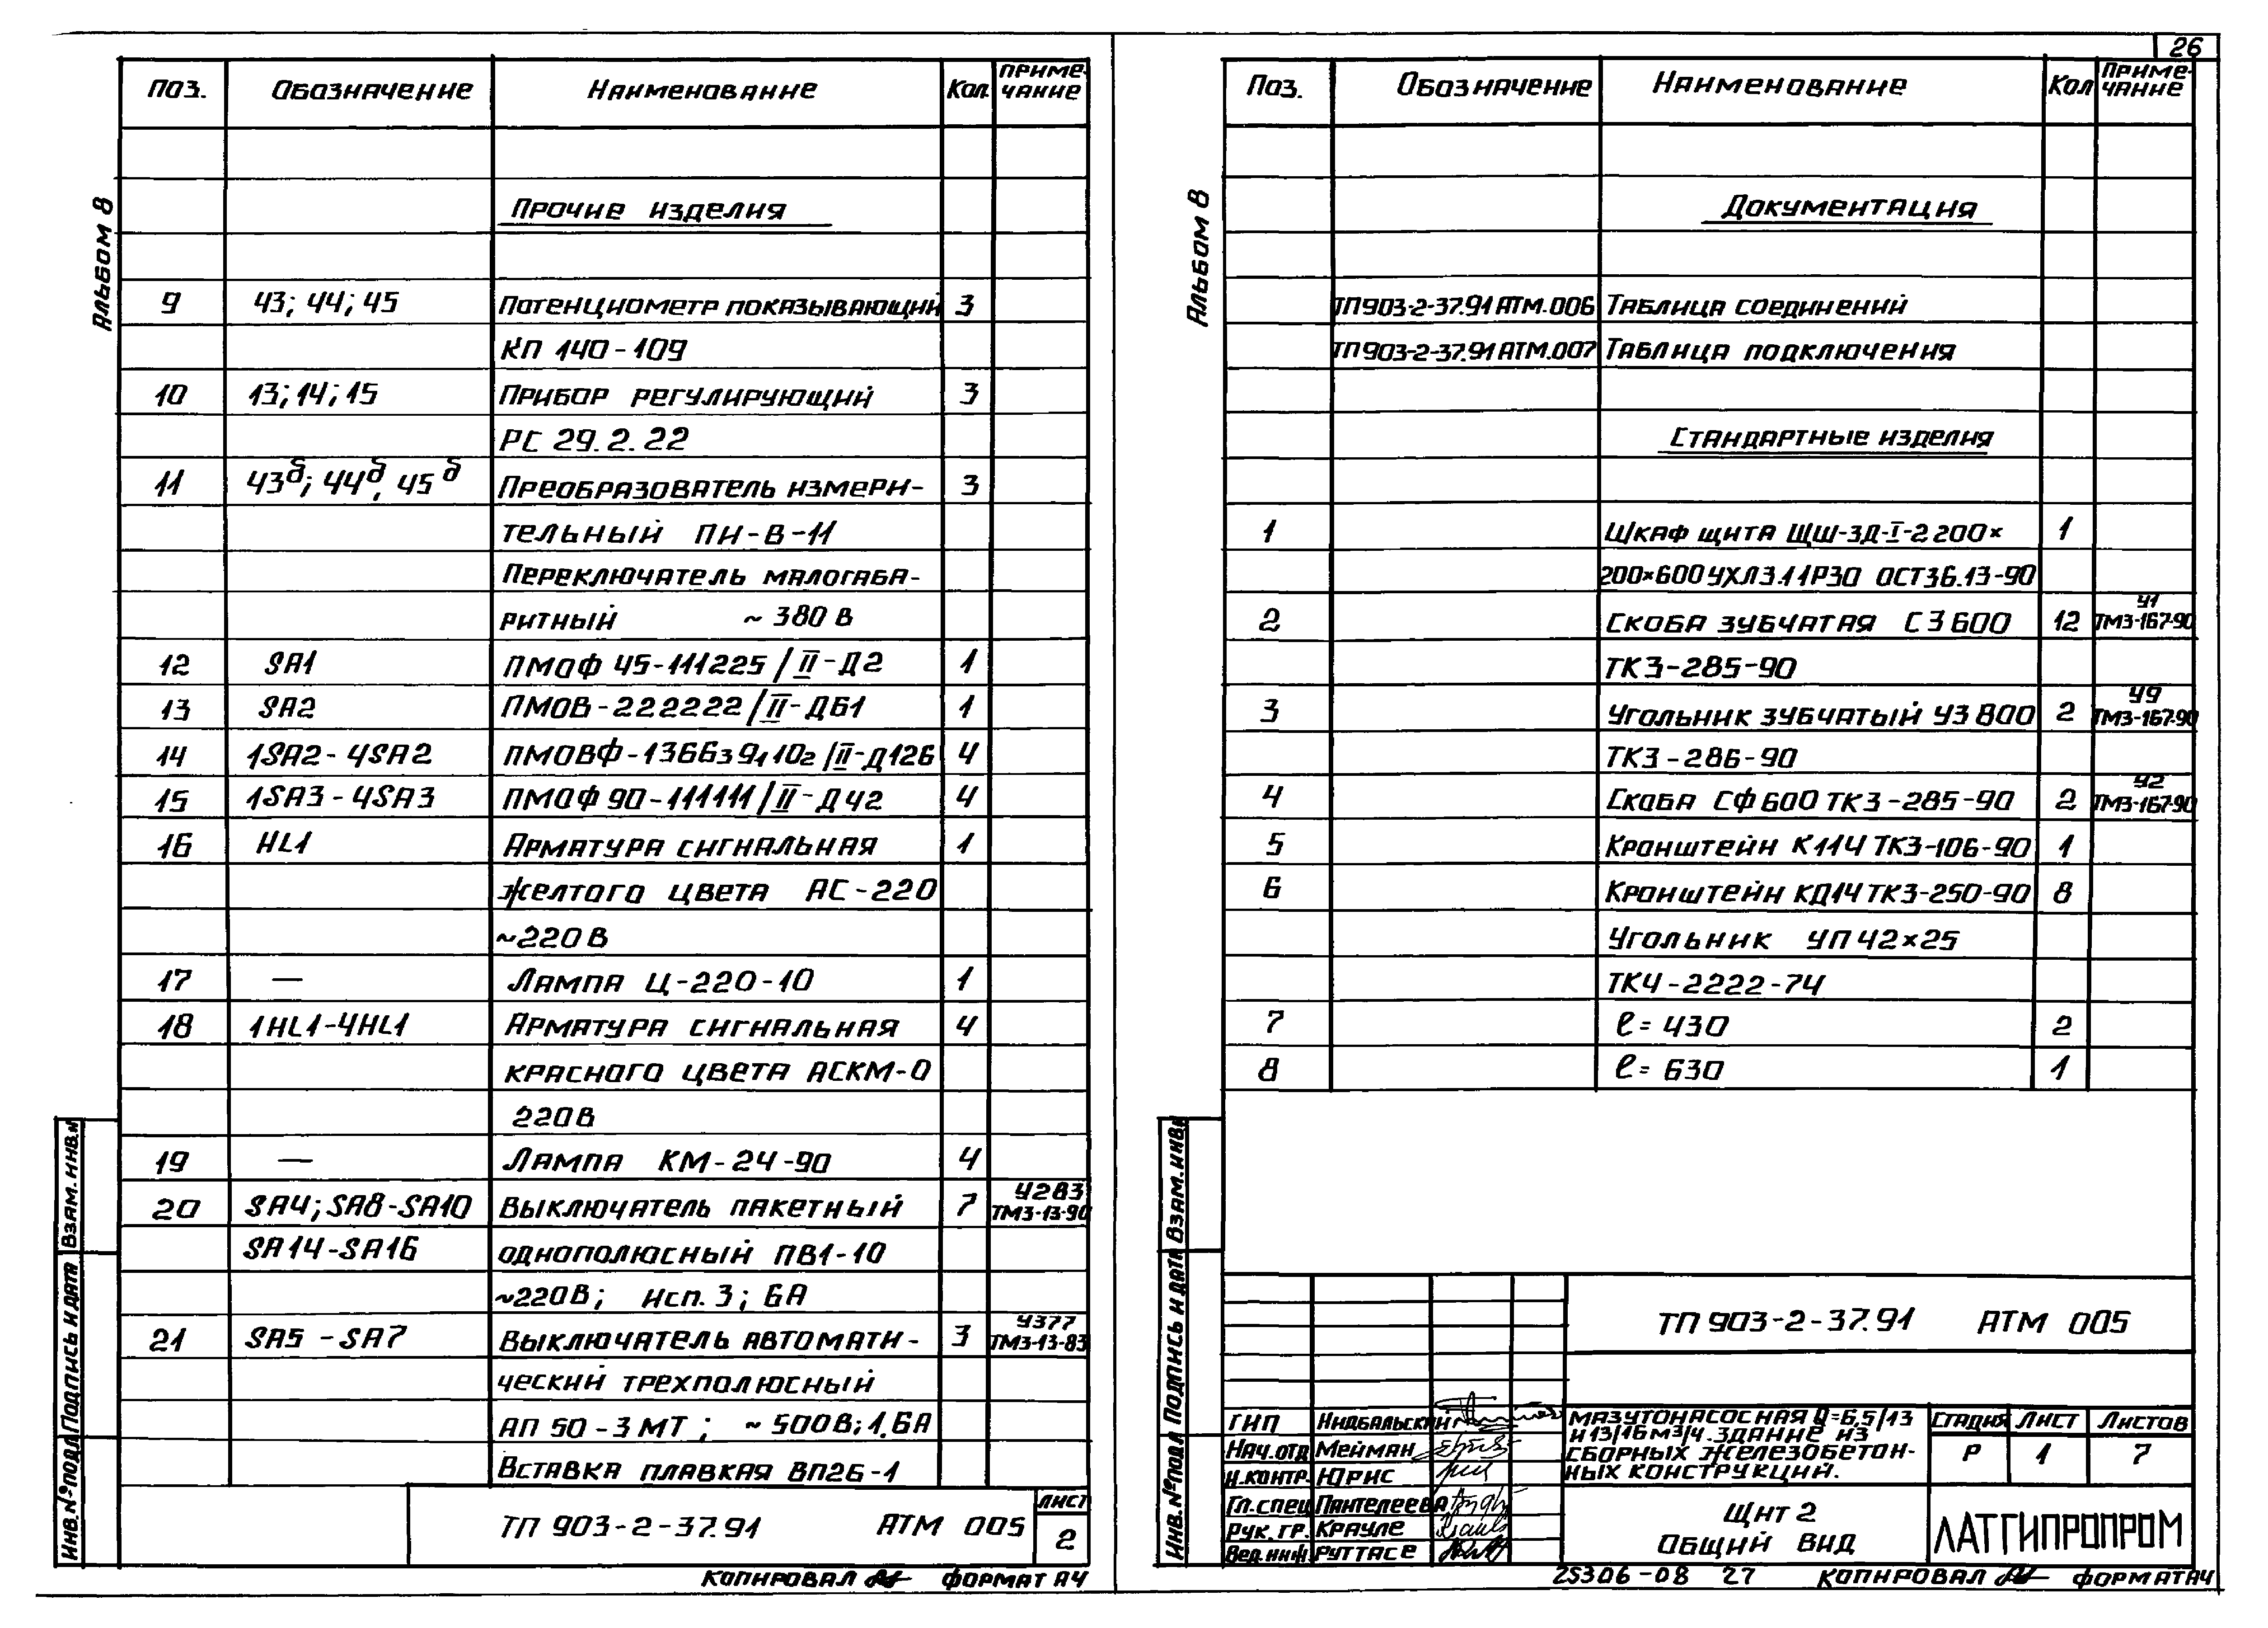 26
Альбом 8
Поз. Обозначение Наименование Кол. Примечание
Прочие изделия
9 43; 44; 45 Потенциометр показывающий 3
КП 140-109
10 13; 14; 15 Прибор регулирующий 3
РС 29.2.22
11 43б; 44б, 45б Преобразователь измери- 3
тельный ПИ-В-11
Переключатель малогаба-
ритный ~ 380 В
12 SA1 ПМОФ 45-111225/II-Д2 1
13 SA2 ПМОВ-222222/II-ДБ1 1
14 1SA2-4SA2 4
15 1SA3-4SA3 ПМОФ 90-111111/II-Д42 4
16 HL1 Арматура сигнальная 1
желтого цвета АС-220
~220 В
17 — Лампа Ц-220-10 1
18 1HL1-4HL1 Арматура сигнальная 4
красного цвета АСКМ-0
220 В
19 — Лампа КМ-24-90 4
20 SA4; SA8-SA10 Выключатель пакетный 7 У283 ТМ3-13-90
SA14-SA16 однополюсный ПВ1-10
~220В; Исп. 3; 6А
21 SA5 - SA7 Выключатель автомати- 3 У377 ТМ3-13-83
ческий трехполюсный
АП 50-3МТ; ~ 500В; 1,6А
Вставка плавкая ВП2Б-1
ТП 903-2-37.91 АТМ 005
Лист
2
Взам. инв. №
Подпись и дата
Инв. № подл
Копировал Формат А4
Альбом 8
Поз. Обозначение Наименование Кол Примечание
Документация
ТП903-2-37.91 АТМ.006 Таблица соединений
ТП903-2-37.91 АТМ.007 Таблица подключения
Стандартные изделия
1 Шкаф щита ЩШ-ЗД-I-2200× 1
200×600 УХЛ3.1 IР30 ОСТ36.13-90
2 Скоба зубчатая СЗ 600 12 У1 ТМ3-167-90
ТК3-285-90
3 Угольник зубчатый УЗ 800 2 У9 ТМ3-167-90
ТК3-286-90
4 Скоба СФ 600 ТК3-285-90 2 У2 ТМ3-167-90
5 Кронштейн К114 ТК3-106-90 1
6 Кронштейн КД14 ТК3-250-90 8
Угольник УП 42×25
ТК4-2222-74
7 ℓ= 430 2
8 ℓ= 630 1
ТП 903-2-37.91 АТМ 005
ГИП Нидбальский
Нач. отд Мейман
Н. контр. Юрис
Гл. спец Пантелеева
Рук. гр. Крауле
Вед. инж. Руттасе
Мазутонасосная Q=6,5/13
и 13/16 м³/ч. Здание из
сборных железобетон-
ных конструкций.
Стадия Лист Листов
Р 1 7
Щит 2
Общий вид
ЛАТГИПРОПРОМ
Взам. инв.
Подпись и дата
Инв. № подл
25306-08 27 Копировал Формат А4